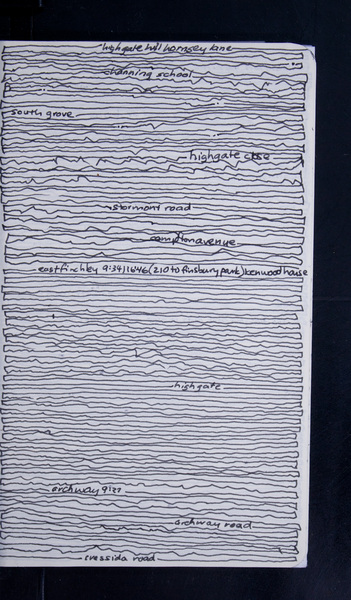 highgate hill hornsey lane
channing school
south grove
highgate close
stormont road
compton avenue
east finchley 9:34/1646 (210 to finsbury park) kenwood house
highgate
archway 9127
archway road
cressida road